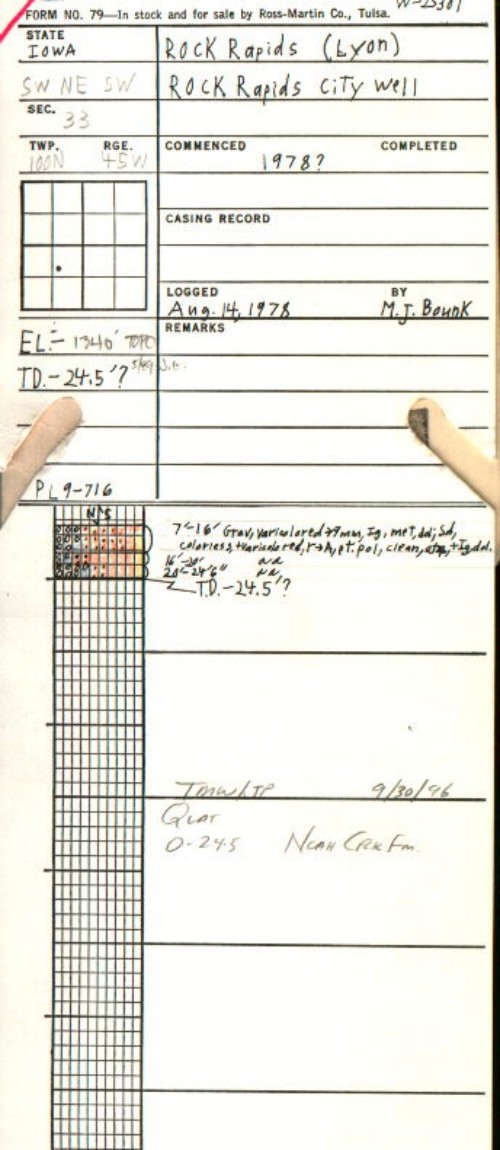 W-25301
FORM NO. 79—In stock and for sale by Ross-Martin Co., Tulsa.
STATE
IOWA
ROCK Rapids (Lyon)
SW NE SW
ROCK Rapids City Well
SEC.
33
TWP. RGE.
100N 45W
COMMENCED COMPLETED
1978?
CASING RECORD
LOGGED BY
Aug. 14, 1978 M.J. Bounk
REMARKS
EL.- 1340' TOPO
TD.-24.5'?
PL 9-716
N S
7'-16' Grav, varicolored →9mm, Ig, met, dol; Sd,
colorless + varicolored, r→A, pt. pol, clean, + Ig, dol.
16'-20' aa
20'-24'6" aa
T.D.-24.5'?
9/30/96
Quat
0-24.5 Noah Crk Fm.